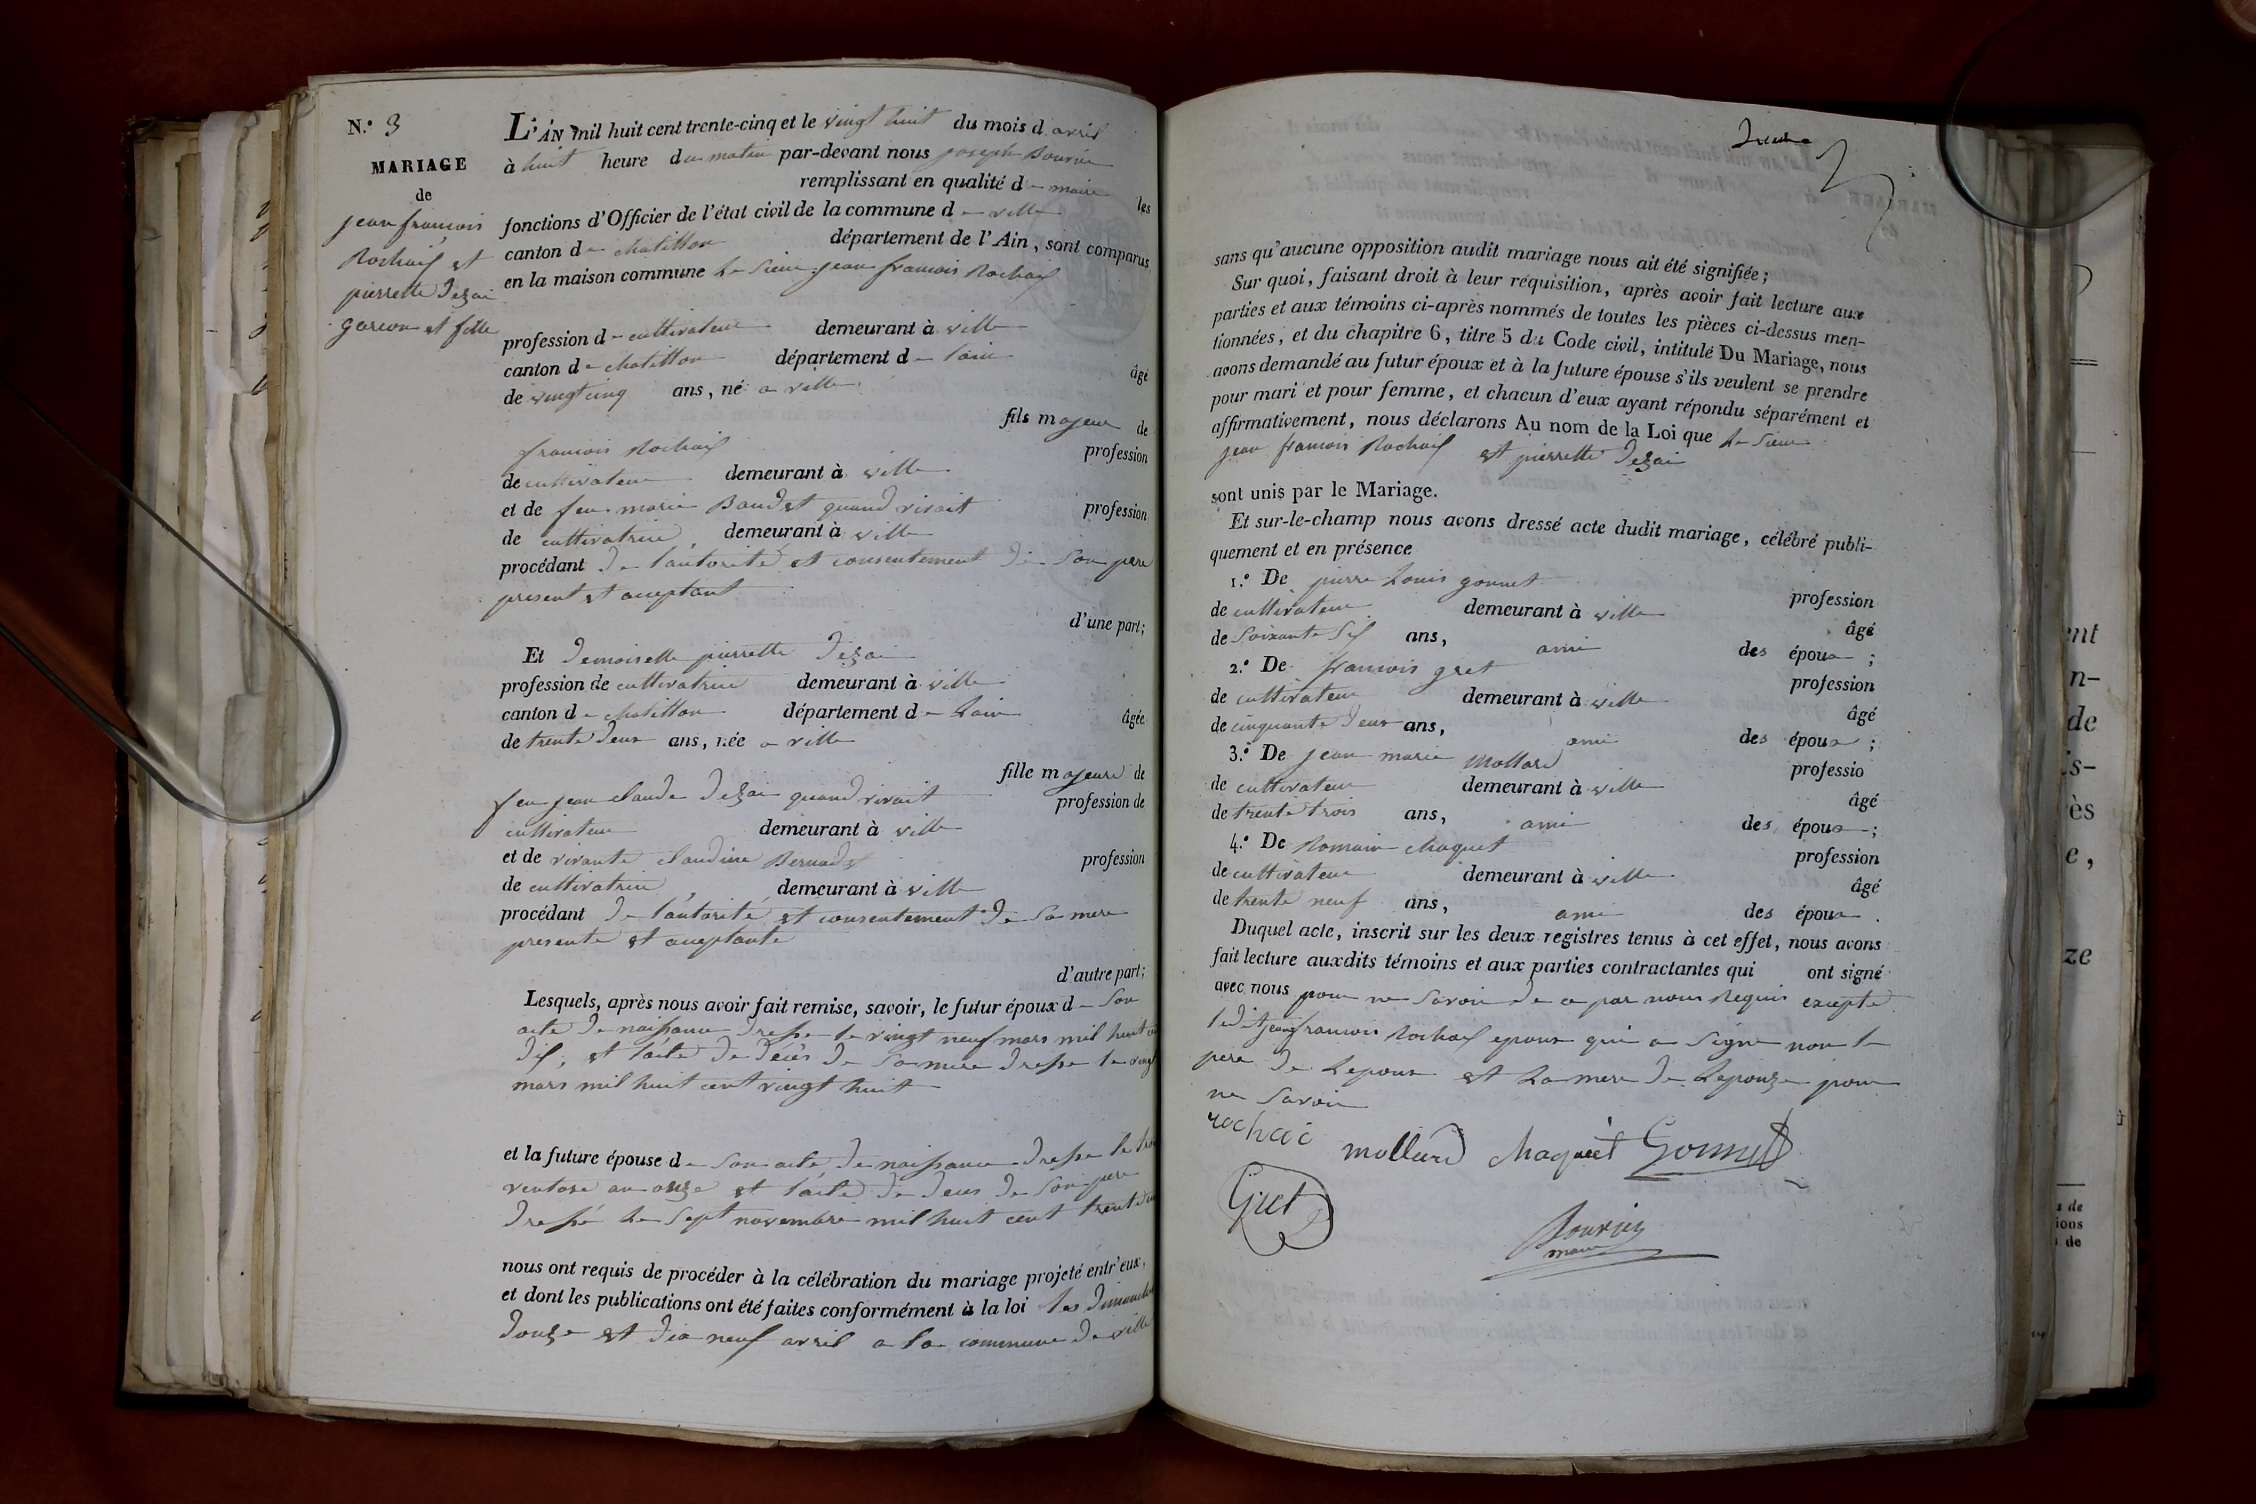 N.º 3
MARIAGE
de
jean françois
Rochaix et
pierrette Dezai
garcon et fille
L'AN mil huit cent trente-cinq et le vingt huit du mois d avril
à huit heure du matin par-devant nous joseph Bouvier
remplissant en qualité de maire les
fonctions d'Officier de l'état civil de la commune de ville
canton de chatillon département de l'Ain, sont comparus
en la maison commune Le Sieur jean francois Rochaix
profession de cultivateur demeurant à ville
canton de chatillon département de lain
âgé
de vingt cinq ans, né a ville
fils majeur de
francois Rochaix profession
de cultivateur demeurant à ville
et de feu marie Baudet quand vivait profession
de cultivatrice, demeurant à ville
procédant de l'autorité et consentement de son pere
present et aceptant
d'une part;
Et demoiselle pierrette Dezai
profession de cultivatrice demeurant à ville
canton de chatillon département de Lain âgée
de trente deux ans, née a ville
fille majeure de
feu jean claude Dezai quand vivait profession de
cultivateur demeurant à ville
et de vivante claudine Bernadet profession
de cultivatrice, demeurant à ville
procédant de l'autorité et consentement de sa mere
presente et aceptante
d'autre part;
Lesquels, après nous avoir fait remise, savoir, le futur époux de son
acte de naissance dressé le vingt neuf mars mil huit
dix, et l'acte de décès de sa mere dressé le
mars mil huit cent vingt huit
et la future épouse de son acte de naissance dressé le
ventose an onze et l'acte de deces de son pere
dressé le sept novembre mil huit cent
nous ont requis de procéder à la célébration du mariage projeté entr'eux,
et dont les publications ont été faites conformément à la loi les dimanches
douze et dix neuf avril a la commune de ville
sans qu'aucune opposition audit mariage nous ait été signifiée;
Sur quoi, faisant droit à leur réquisition, après avoir fait lecture aux
parties et aux témoins ci-après nommés de toutes les pièces ci-dessus men-
tionnées, et du chapitre 6, titre 5 du Code civil, intitulé Du Mariage, nous
avons demandé au futur époux et à la future épouse s'ils veulent se prendre
pour mari et pour femme, et chacun d'eux ayant répondu séparément et
affirmativement, nous déclarons Au nom de la Loi que Le Sieur
jean francois Rochaix et pierrette Dezai
sont unis par le Mariage.
Et sur-le-champ nous avons dressé acte dudit mariage, célébré publi-
quement et en présence
1.º De pierre Louis gonnet profession
de cultivateur demeurant à ville âgé
de soixante six ans, ami des époux;
2.º De francois gret profession
de cultivateur demeurant à ville âgé
de cinquante deux ans, ami des époux;
3.º De jean marie Mollard professio
de cultivateur demeurant à ville âgé
de trente trois ans, ami des époux;
4.º De Romain Maquet profession
de cultivateur demeurant à ville âgé
de trente neuf ans, ami des époux.
Duquel acte, inscrit sur les deux registres tenus à cet effet, nous avons
fait lecture auxdits témoins et aux parties contractantes qui ont signé
avec nous pour ne savoir de ce par nous Requis excepté
ledit jean francois Rochaix epoux qui a signé non le
pere de Lepoux et La mere de Lepouze pour
ne savoir
rochaic mollard Maquet Gonnet
Gret
Bouvier
maire